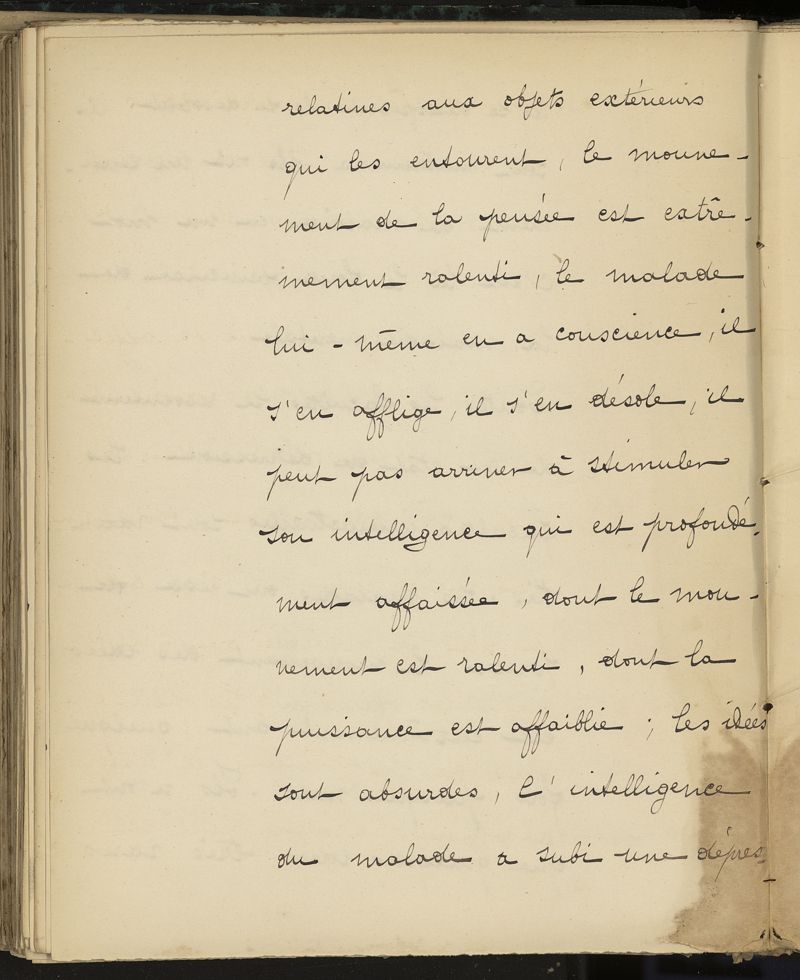 relatives aux objets extérieurs
qui les entourent, le mouve-
ment de la pensée est extrê-
mement ralenti, le malade
lui-même en a conscience, il
s'en afflige, il s'en désole, il
peut pas arriver à stimuler
son intelligence qui est profondé-
ment affaissée, dont le mou-
vement est ralenti, dont la
puissance est affaiblie ; les idées
sont absurdes, l'intelligence
du malade a subi une dépres-